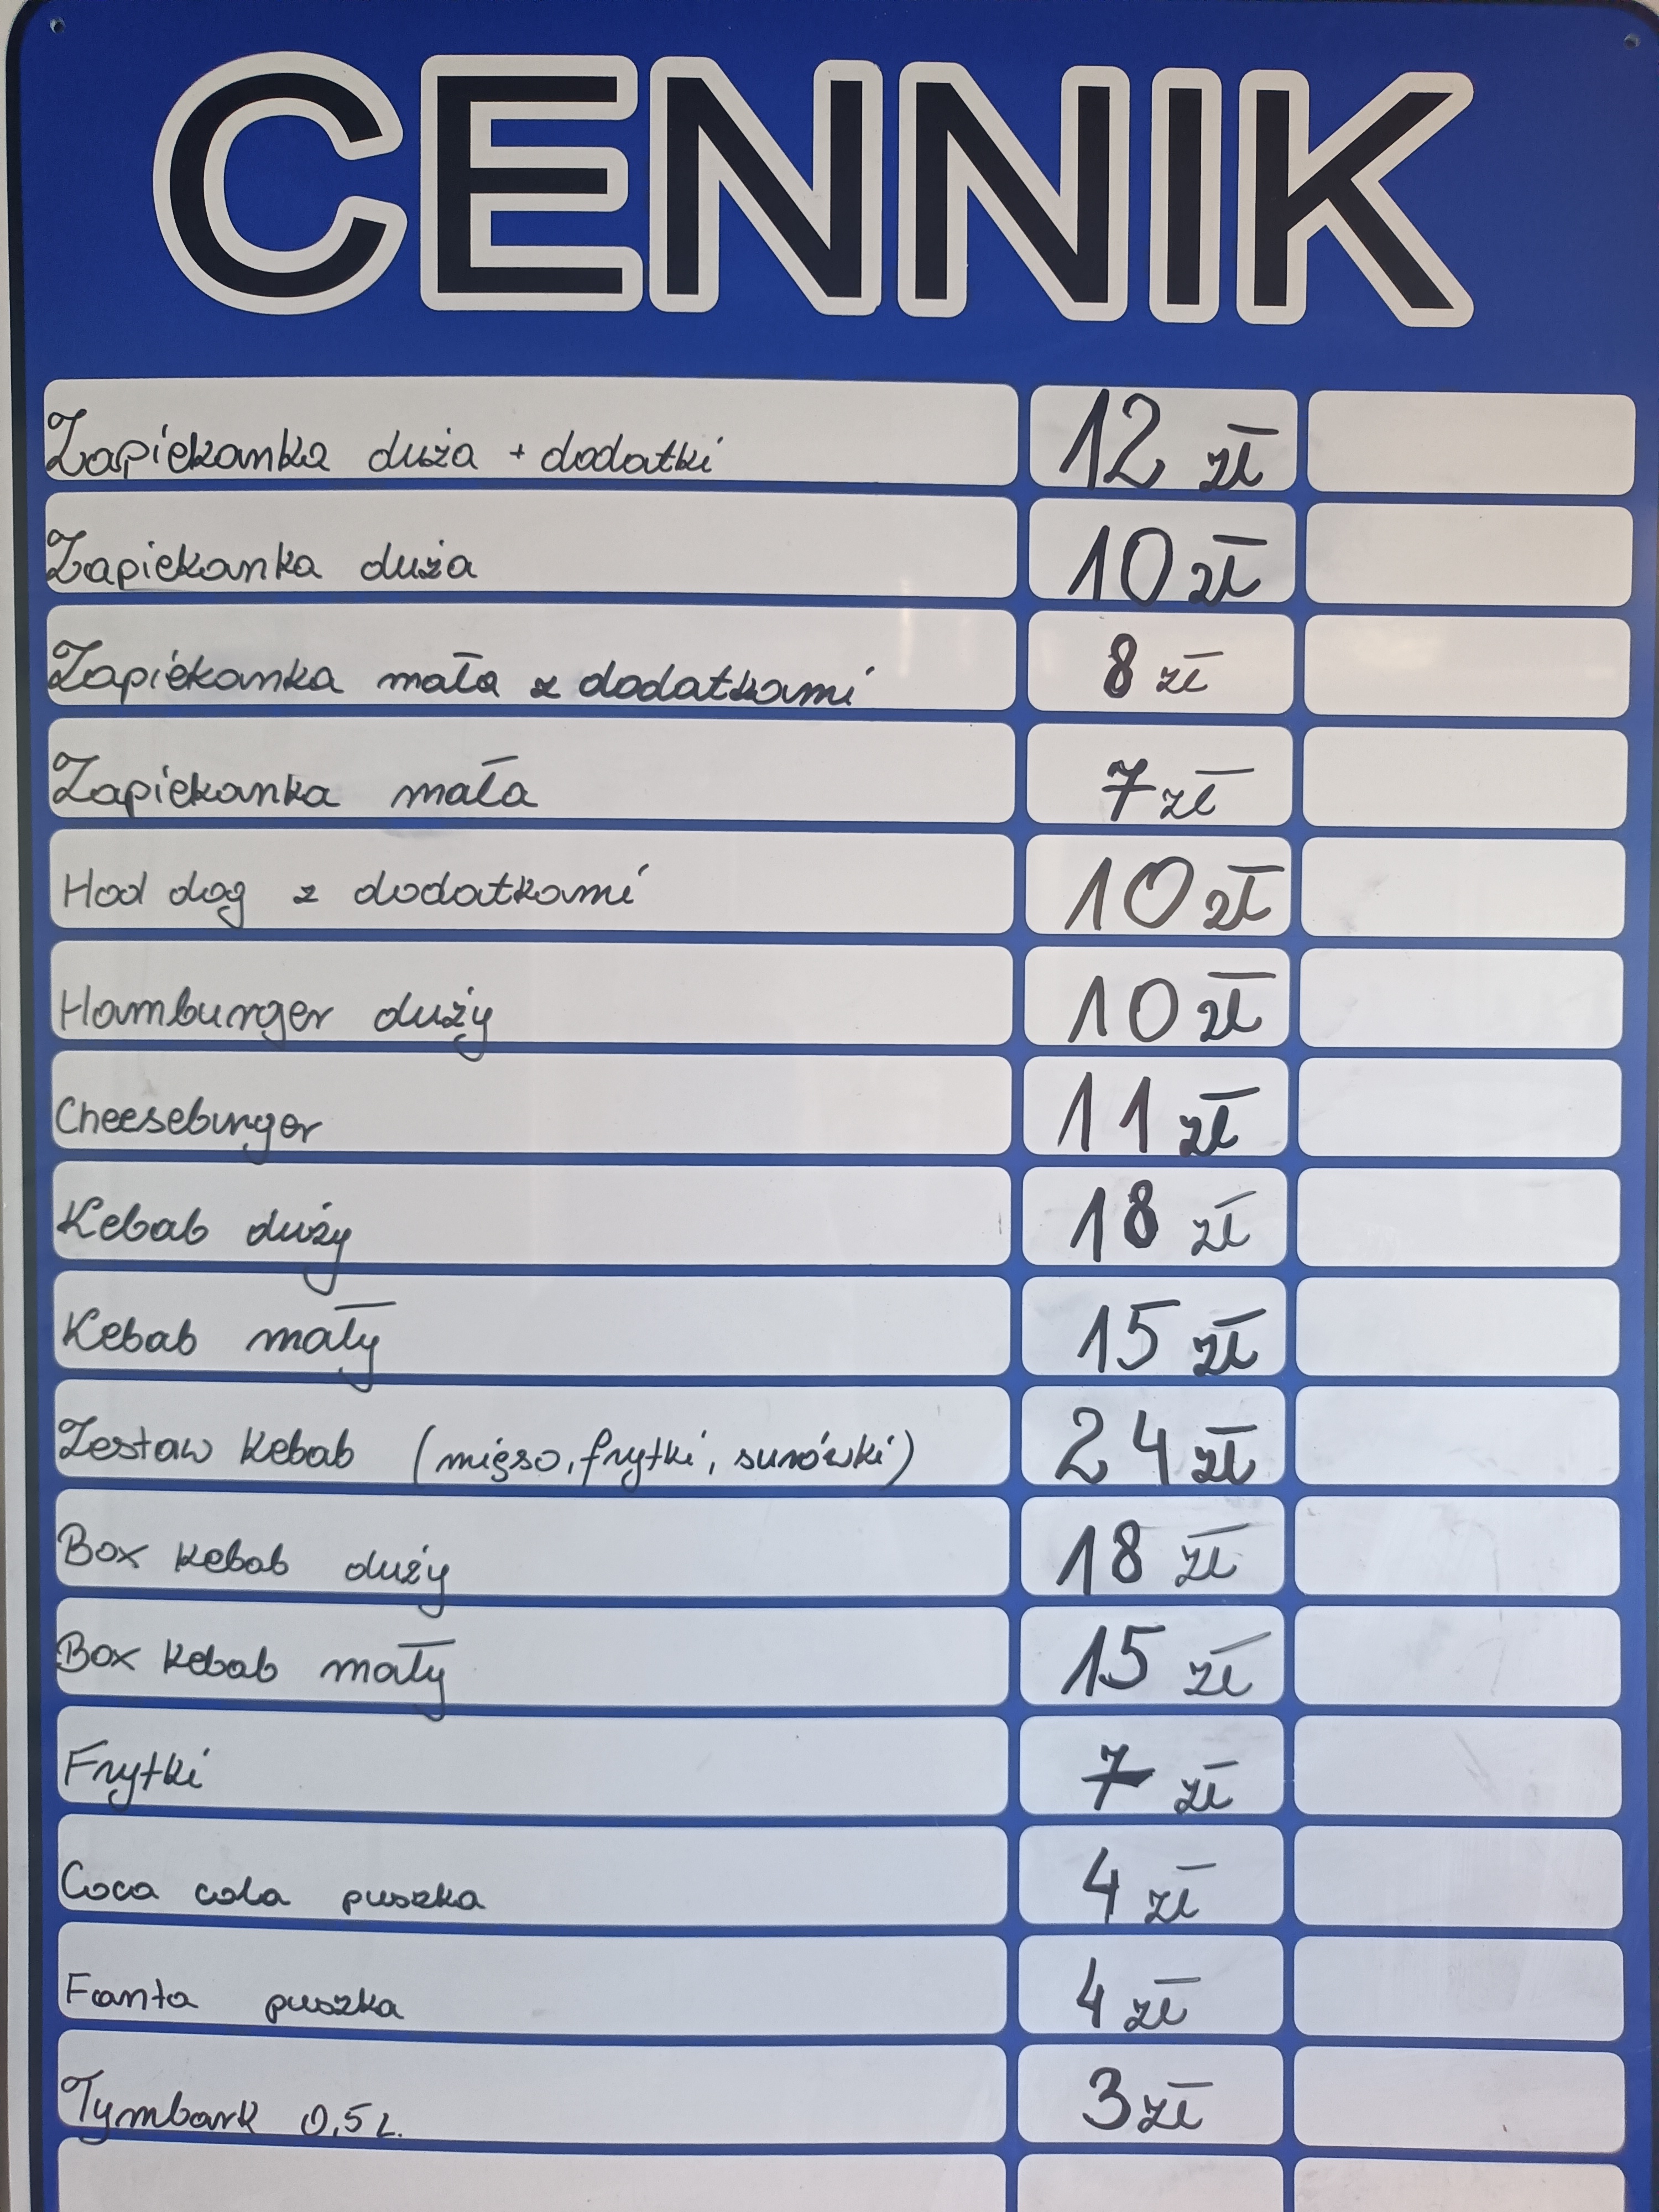 CENNIK
Zapiekanka duża + dodatki 12 zł
Zapiekanka duża 10 zł
Zapiekanka mała z dodatkami 8 zł
Zapiekanka mała 7 zł
Hod dog z dodatkami 10 zł
Hamburger duży 10 zł
Cheeseburger 11 zł
Kebab duży 18 zł
Kebab mały 15 zł
Zestaw kebab (mięso, frytki, surówki) 24 zł
Box kebab duży 18 zł
Box kebab mały 15 zł
Frytki 7 zł
Coca cola puszka 4 zł
Fanta puszka 4 zł
Tymbark 0,5 L. 3 zł